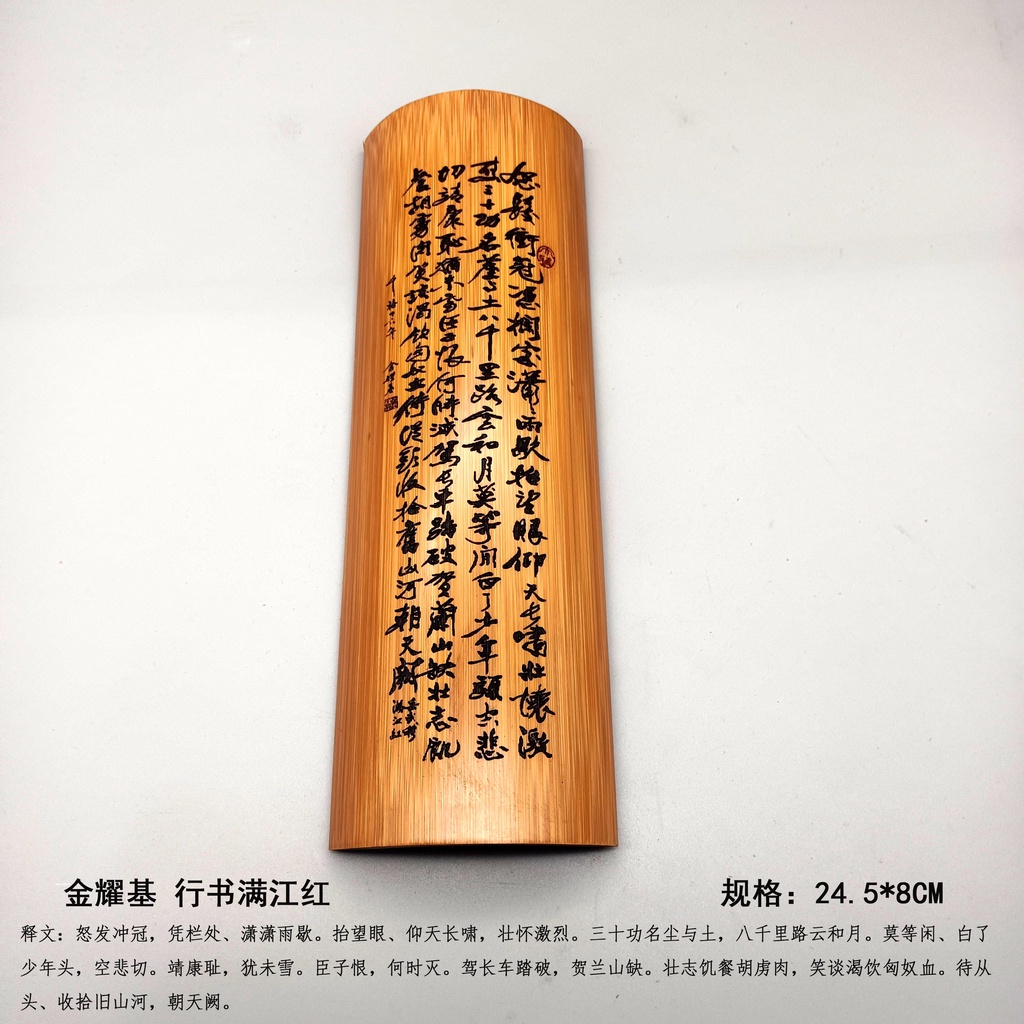 怒髮衝冠憑欄處瀟瀟雨歇抬望眼仰天長嘯壯懷激
烈三十功名塵与土八千里路雲和月莫等閒白了少年頭空悲
切靖康恥猶未雪臣子恨何時滅駕長車踏破賀蘭山缺壯志飢
餐胡虜肉笑談渴飲匈奴血待從頭收拾舊山河朝天闕 岳武穆滿江紅
千禧十六年 金耀基
金耀基 行书满江红
规格：24.5*8CM
释文：怒发冲冠，凭栏处、潇潇雨歇。抬望眼、仰天长啸，壮怀激烈。三十功名尘与土，八千里路云和月。莫等闲、白了
少年头，空悲切。靖康耻，犹未雪。臣子恨，何时灭。驾长车踏破，贺兰山缺。壮志饥餐胡虏肉，笑谈渴饮匈奴血。待从
头、收拾旧山河，朝天阙。